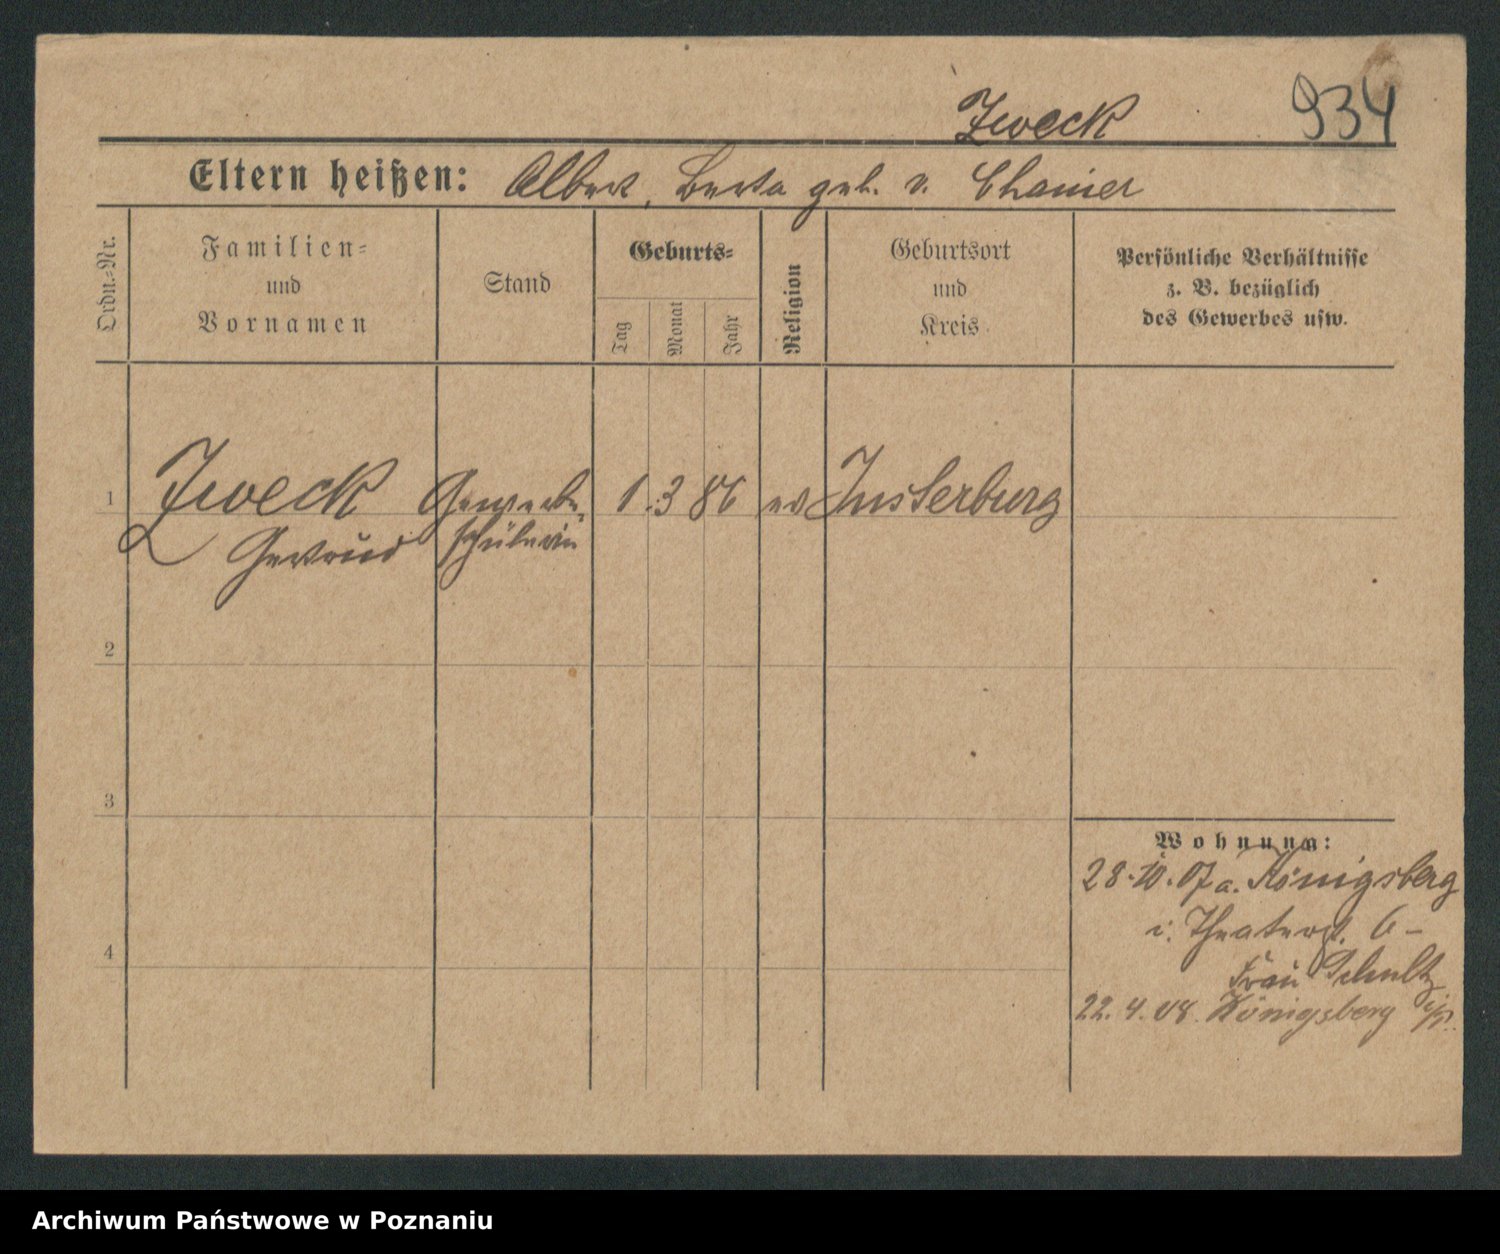 Zweck
934
Eltern heißen: Albert, Berta geb. v. Chamier
Ordn.-Nr.
Familien-
und
Vornamen
Stand
Geburts-
Tag
Monat
Jahr
Religion
Geburtsort
und
Kreis
Persönliche Verhältnisse
z. B. bezüglich
des Gewerbes usw.
1 Zweck Gewerbe- 1. 3 86 ev Insterburg
Gertrud schülerin
2
3
4
Wohnung:
28.10.07 a. Königsberg
i. Theaterst. 6 -
Frau Schultz
22.4.08. Königsberg i/Pr.